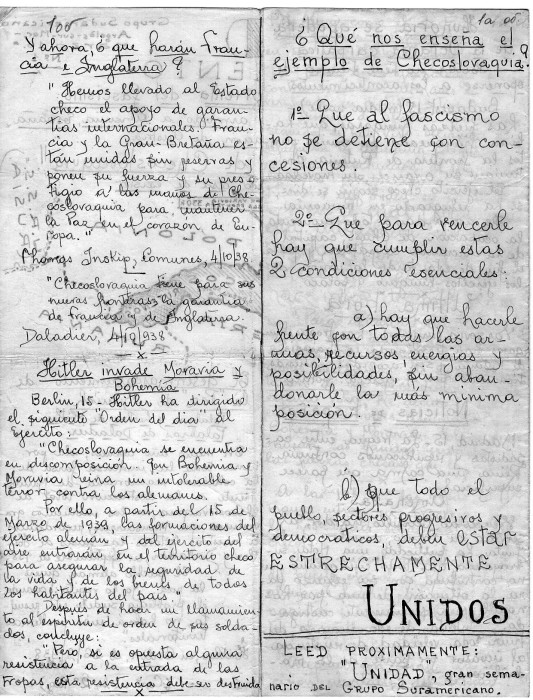 100
Y ahora, ¿ que harán Fran-
cia e Inglaterra ?
"Hemos llevado al Estado
checo el apoyo de garan-
tias internacionales. Fran-
cia y la Gran-Bretaña es-
tán unidas sin reservas y
ponen su fuerza y su pres-
tigio a las manos de Che-
coslovaquia para mantener
la Paz en el corazón de Eu-
ropa."
Thomas Inskip, Comunes, 4/10/38
"Checoslovaquia tiene para sus
nuevas fronteras la garantia
de Francia y de Inglaterra.
Daladier, 4/10/938
x
Hitler invade Moravia y
Bohemia
Berlin, 15 - Hitler ha dirigido
el siguiente "Orden del dia" al
Ejército:
"Checoslovaquia se encuentra
en descomposición. En Bohemia y
Moravia reina un intolerable
terror contra los alemanes.
Por ello, a partir del 15 de
Marzo de 1939, las formaciones del
ejército alemán y del ejército del
aire entrarán en el territorio checo
para asegurar la seguridad de
la vida y de los bienes de todos
los habitantes del pais."
Después de hacer un llamamien-
to al espiritu de orden de sus solda-
dos, concluye:
"Pero, si es opuesta alguna
resistencia a la entrada de las
tropas, esta resistencia debe ser destruida
x
¿ Qué nos enseña el
ejemplo de Checoslovaquia?
1º Que al fascismo
no se detiene con con-
cesiones.
2º Que para vencerle
hay que cumplir estas
2 condiciones esenciales:
a) hay que hacerle
frente con todas las ar-
mas, recursos, energias y
posibilidades, sin aban-
donarle la más minima
posición.
b) que todo el
pueblo, sectores progresivos y
democraticos, deben estar
ESTRECHAMENTE
UNIDOS
LEED PROXIMAMENTE:
"UNIDAD", gran sema-
nario DEL GRUPO SURAMERICANO.